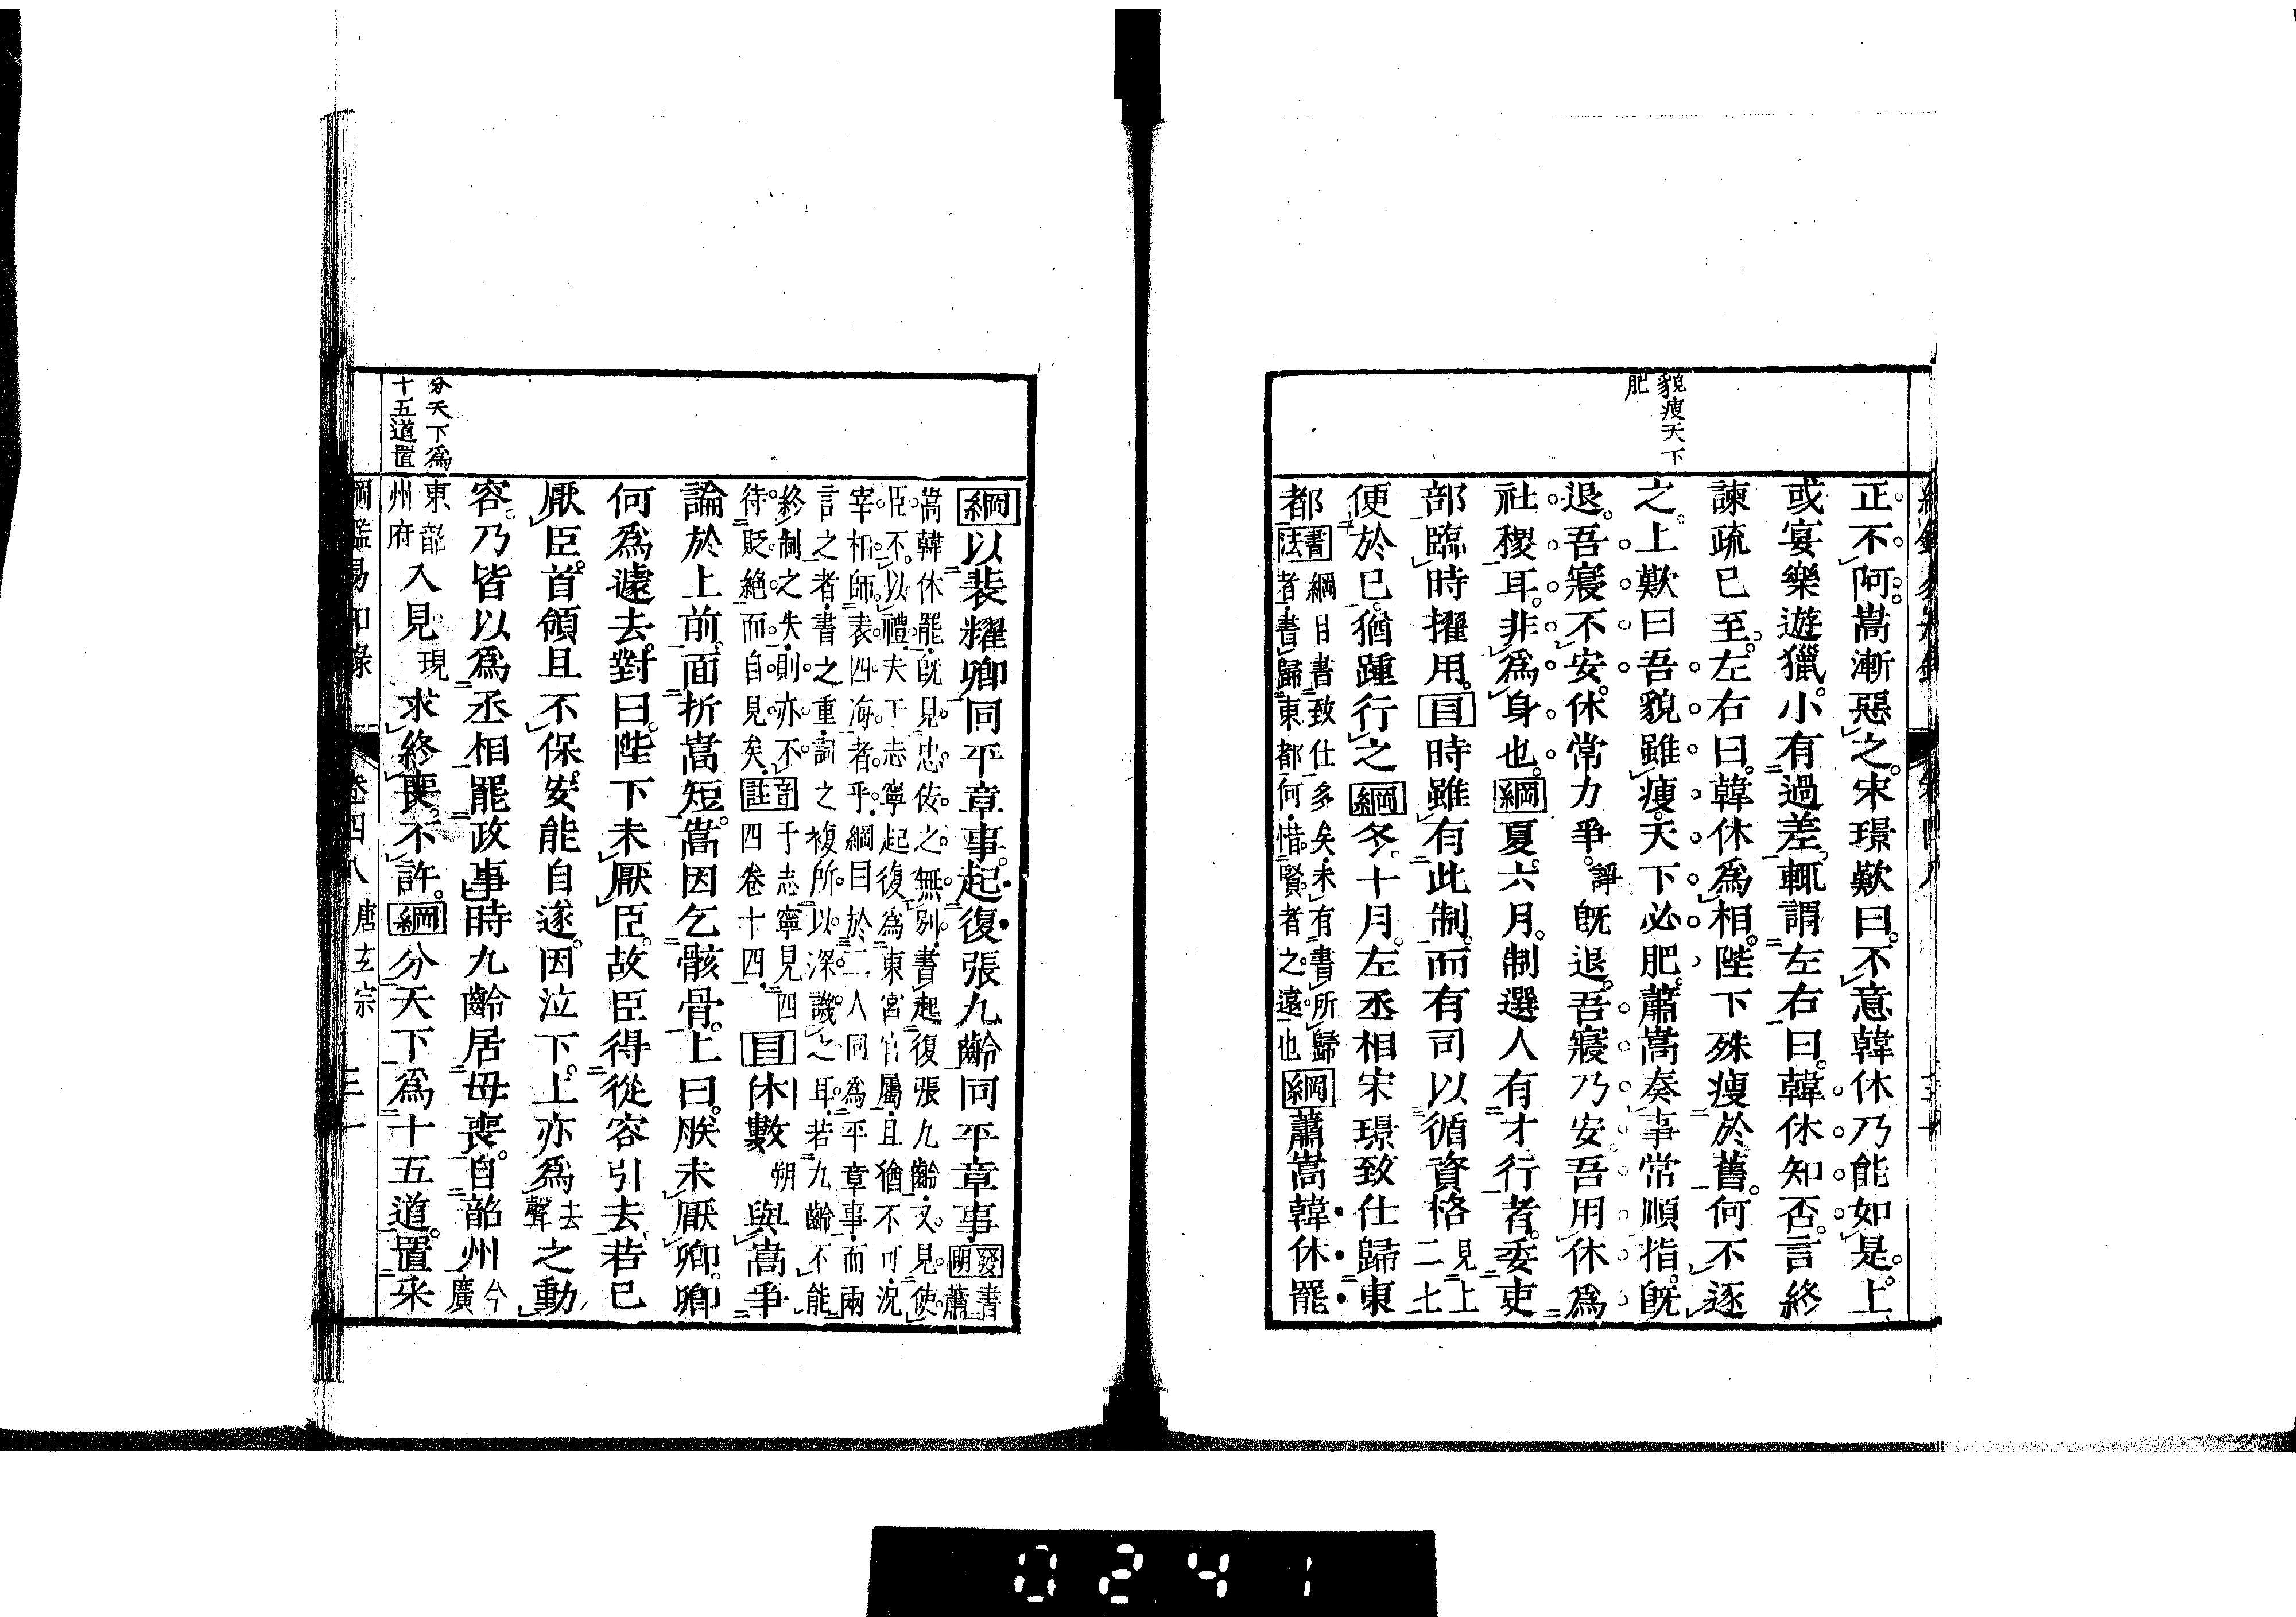 貌瘦天下
肥
正不阿嵩漸惡之宋璟歎曰不意韓休乃能如是上
或宴樂遊獵小有過差輒謂左右曰韓休知否言終
諫疏已至左右曰韓休爲相陛下殊瘦於舊何不逐
之上歎曰吾貌雖瘦天下必肥蕭嵩奏事常順指既
退吾寢不安休常力爭諍既退吾寢乃安吾用休爲
社稷耳非爲身也綱夏六月制選人有才行者委吏
部臨時擢用目時雖有此制而有司以循資格見上二七
便於已猶踵行之綱冬十月左丞相宋璟致仕歸東
都書法綱目書致仕多矣未有書所歸者書歸東都何惜賢者之遠也綱蕭嵩韓休罷
綱以裴耀卿同平章事起復張九齡同平章事發明書蕭
嵩韓休罷既見忠佞之無別書起復張九齡又見使
臣不以禮夫于志寧起復爲東宮官屬且猶不可況
宰相師表四海者乎綱目於二人同爲平章事而兩
言之者書之重詞之複所以深譏之耳若九齡不能
終制之失則亦不待貶絕而自見矣音註于志寧見四四卷十四目休數朔與嵩爭
論於上前面折嵩短嵩因乞骸骨上曰朕未厭卿卿
何爲遽去對曰陛下未厭臣故臣得從容引去若已
厭臣首領且不保安能自遂因泣下上亦爲去聲之動
容乃皆以爲丞相罷政事時九齡居母喪自韶州今廣
東韶州府入見現求終喪不許綱分天下爲十五道置采
分天下爲
十五道置
綱鑑易知錄 卷四八 唐玄宗 三一
0241